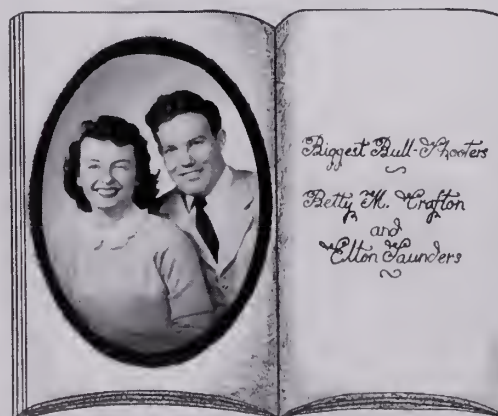 Biggest Bull-Shooters
Betty M. Crafton
and
Elton Saunders